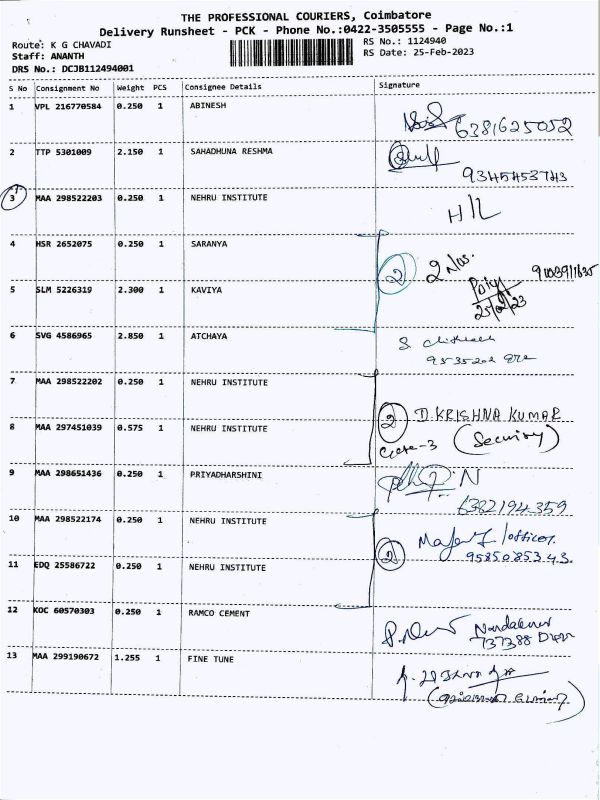 THE PROFESSIONAL COURIERS, Coimbatore
Delivery Runsheet - PCK - Phone No.:0422-3505555 - Page No.:1
Route: K G CHAVADI
RS No.: 1124940
Staff: ANANTH
RS Date: 25-Feb-2023
DRS No.: DCJB112494001
S No Consignment No Weight PCS Consignee Details Signature
1 VPL 216770584 0.250 1 ABINESH
6381625052
2 TTP 5301009 2.150 1 SAHADHUNA RESHMA
9345453743
3 MAA 298522203 0.250 1 NEHRU INSTITUTE
H/L
4 HSR 2652075 0.250 1 SARANYA
2 2 Nos.
5 SLM 5226319 2.300 1 KAVIYA
25/02/23
6 SVG 4586965 2.850 1 ATCHAYA
7 MAA 298522202 0.250 1 NEHRU INSTITUTE
2 D.KRISHNA KUMAR
8 MAA 297451039 0.575 1 NEHRU INSTITUTE
Gate-3 (Security)
9 MAA 298651436 0.250 1 PRIYADHARSHINI
6382194359
10 MAA 298522174 0.250 1 NEHRU INSTITUTE
2 /officer.
11 EDQ 25586722 0.250 1 NEHRU INSTITUTE
9585085343
12 KOC 60570303 0.250 1 RAMCO CEMENT
13 MAA 299190672 1.255 1 FINE TUNE